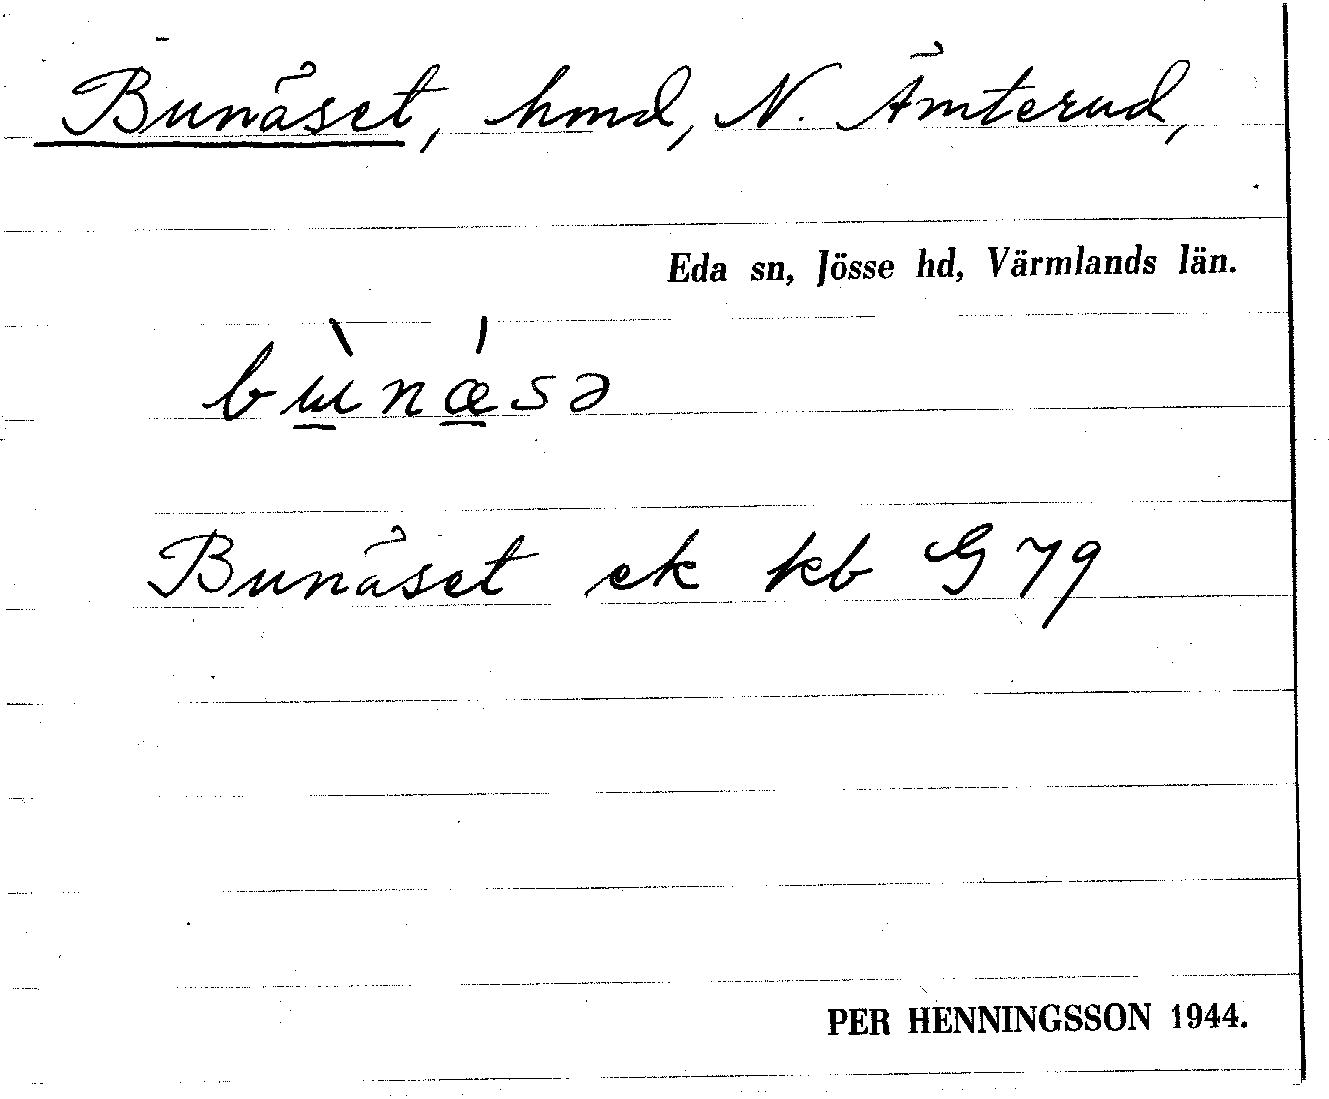 Bunäset, hmd, N. Ämterud,
Eda sn, Jösse hd, Värmlands län.
bɯ̀nǽsə
Bunäset ek kb G 79
PER HENNINGSSON 1944.